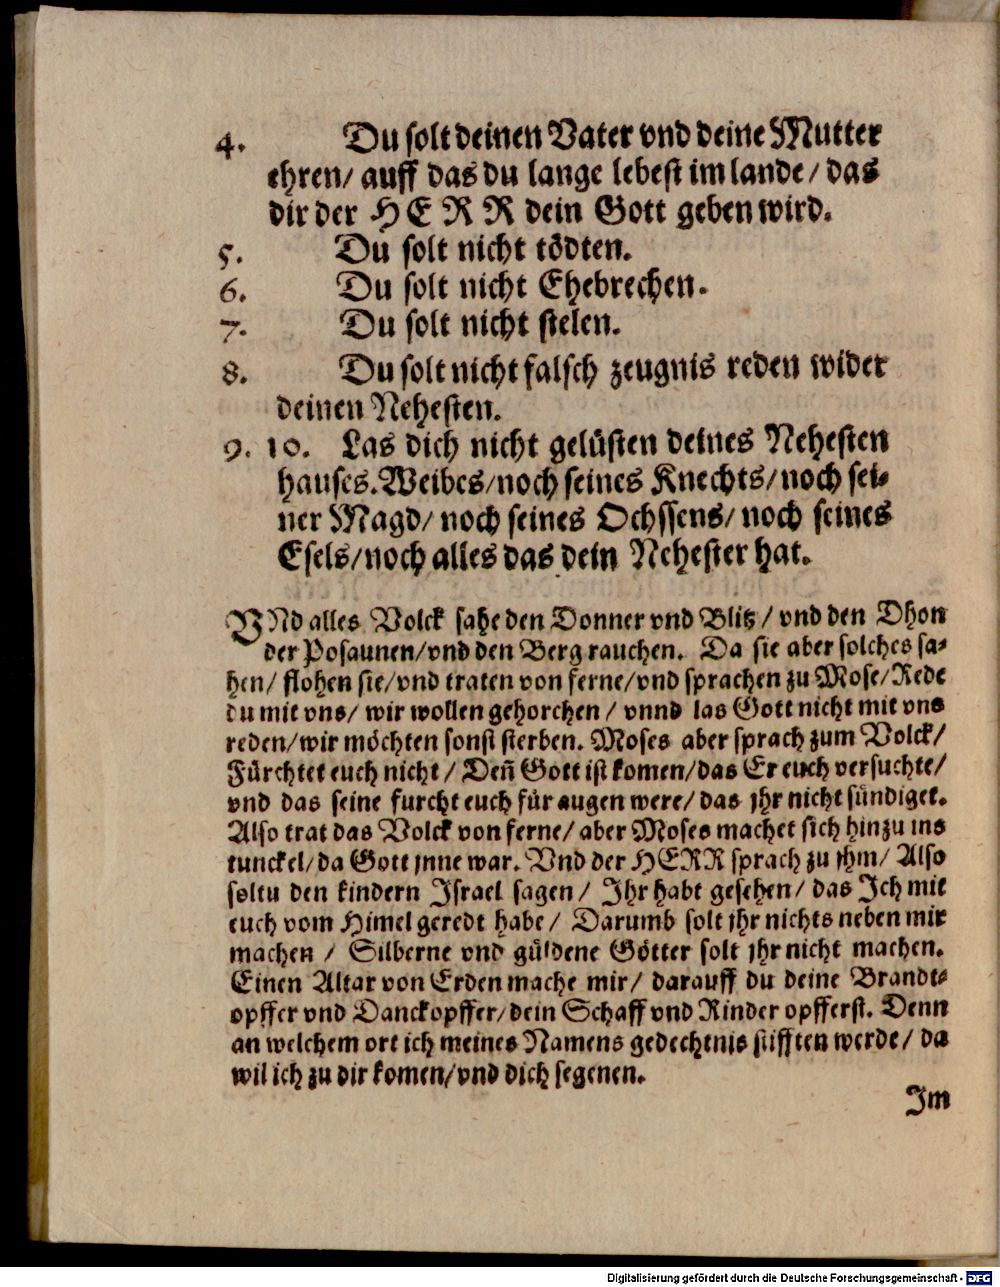 4. Du solt deinen Vater vnd deine Mutter
ehren/ auff das du lange lebest im lande/ das
dir der HERR dein Gott geben wird.
5. Du solt nicht tödten.
6. Du solt nicht Ehebrechen.
7. Du solt nicht stelen.
8. Du solt nicht falsch zeugnis reden wider
deinen Nehesten.
9. 10. Las dich nicht gelüsten deines Nehesten
hauses. Weibes/ noch seines Knechts/ noch sei-
ner Magd/ noch seines Ochssens/ noch seines
Esels/ noch alles das dein Nehester hat.
VNd alles Volck sahe den Donner vnd Blitz/ vnd den Dhon
der Posaunen/ vnd den Berg rauchen. Da sie aber solches sa-
hen/ flohen sie/ vnd traten von ferne/ vnd sprachen zu Mose/ Rede
du mit vns/ wir wollen gehorchen/ vnnd las Gott nicht mit vns
reden/ wir möchten sonst sterben. Moses aber sprach zum Volck/
Fürchtet euch nicht/ Deñ Gott ist komen/ das Er euch versuchte/
vnd das seine furcht euch für augen were/ das jhr nicht sündiget.
Also trat das Volck von ferne/ aber Moses machet sich hinzu ins
tunckel/ da Gott jnne war. Vnd der HERR sprach zu jhm/ Also
soltu den kindern Israel sagen/ Ihr habt gesehen/ das Ich mit
euch vom Himel geredt habe/ Darumb solt jhr nichts neben mir
machen/ Silberne vnd güldene Götter solt jhr nicht machen.
Einen Altar von Erden mache mir/ darauff du deine Brandt-
opffer vnd Danckopffer/ dein Schaff vnd Rinder opfferst. Denn
an welchem ort ich meines Namens gedechtnis stifften werde/ da
wil ich zu dir komen/ vnd dich segenen.
Im
Digitalisierung gefördert durch die Deutsche Forschungsgemeinschaft - DFG